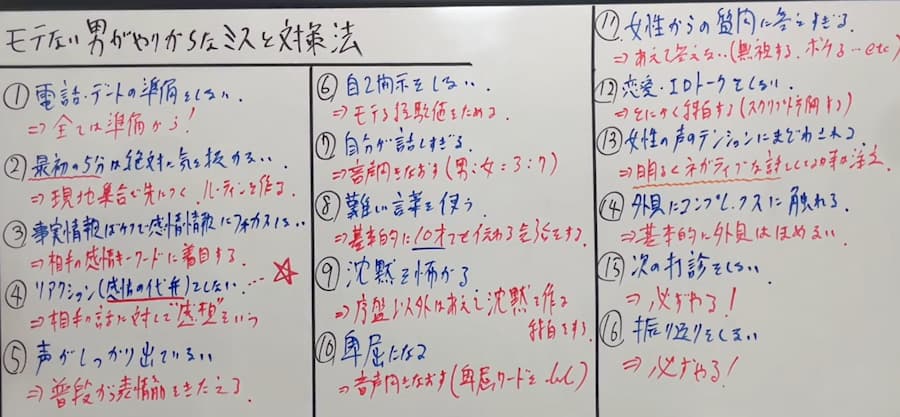 モテない男がやりがちなミスと対策法
① 電話・デートの準備をしない。
⇒ 全ては準備から!
② 最初の5分は絶対に気を抜かない。
⇒ 現地集合で先につく ルーティンを作る。
③ 事実情報ばかりで感情情報にフォーカスしない。
⇒ 相手の感情キーワードに着目する
④ リアクション(感情の代弁)をしない。…☆
⇒ 相手の話に対して"感想"をいう
⑤ 声がしっかり出ていない
⇒ 普段から表情筋をきたえる
⑥ 自己開示をしない。
⇒ モテる経験値をためる
⑦ 自分が話しすぎる
⇒ 音声内をなおす(男:女=3:7)
⑧ 難い言葉を使う
⇒ 基本的に10才でも伝わる会話をする。
⑨ 沈黙を怖がる
⇒ 序盤以外はあえて沈黙を作る
をする。
⑩ 卑屈になる
⇒ 音声内をなおす(卑屈ワードを
⑪ 女性からの質問に答えすぎる。
⇒ あえて答えない(無視する、ボケる…etc)
⑫ 恋愛・IDトークをしない
⇒ とにかく する(スクリプト する)
⑬ 女性の声のテンションにまどわされる
⇒ 明るくネガティブな話してくる事に注意
⑭ 外見にコンプレックスに触れる。
⇒ 基本的に外見はほめない。
⑮ 次の打診をしない
⇒ 必ずやる!
⑯ 振り返りをしない
⇒ 必ずやる!